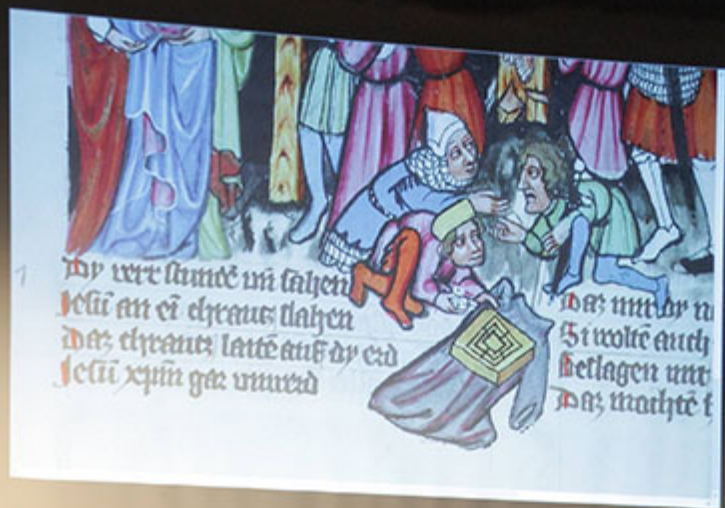 Dy verr stundē vn̄ sahen
Jesū an eī chrautz slahen
Daz chrautz laitē auf dy erd
Jesū xp̄m gar vnuerd
Daz mit dy
Si woltē auch
Daz machtē